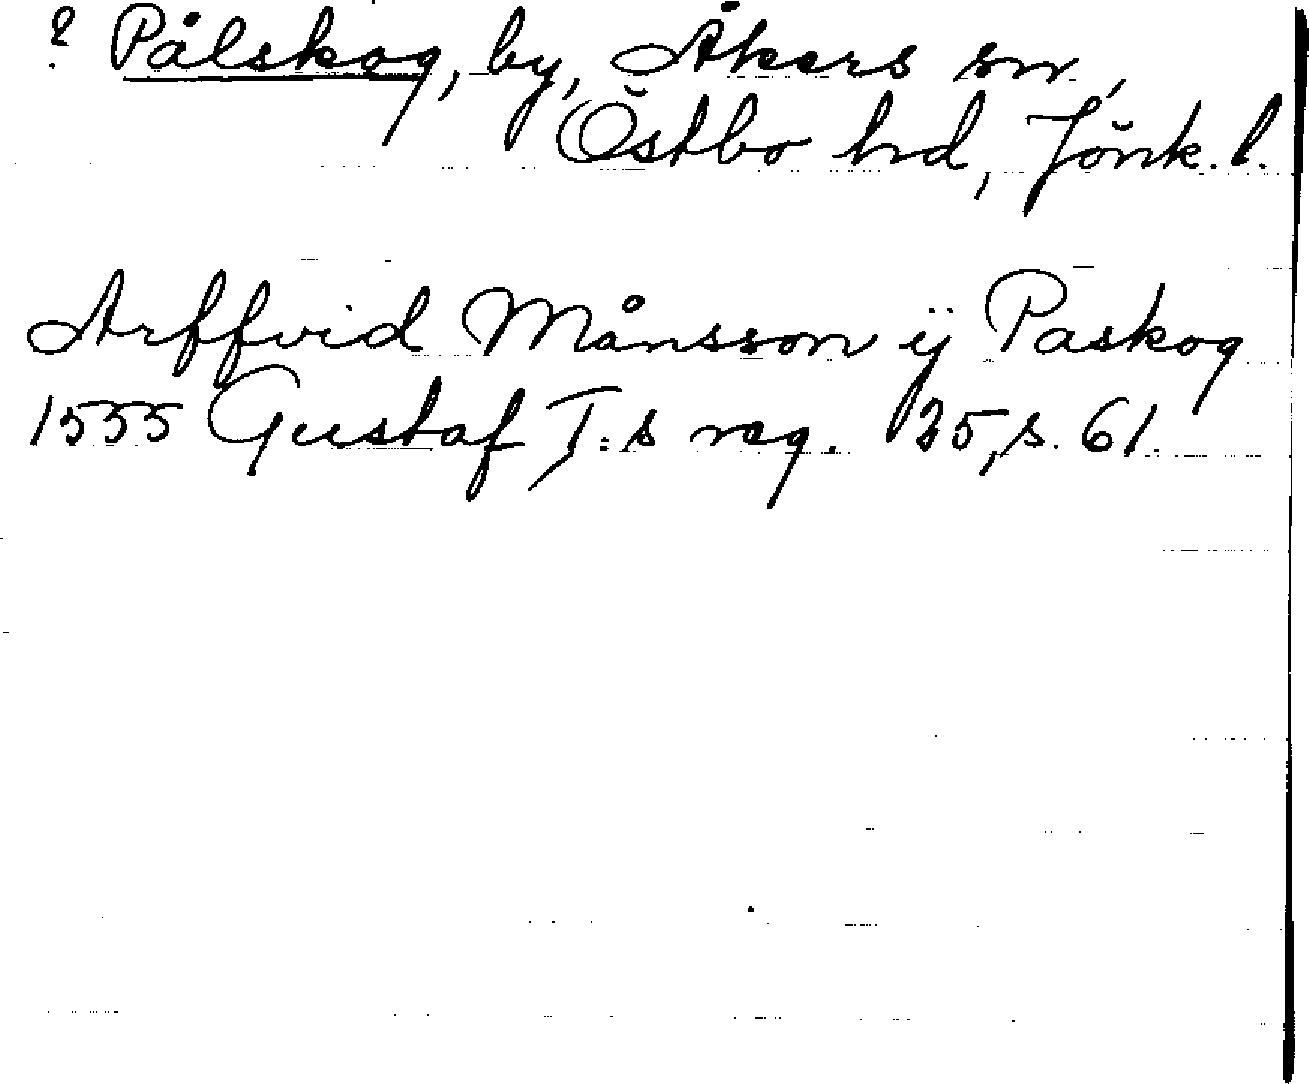 ? Pålskog, by, Åkers sn,
Östbo hd, Jönk. l.
Arffvid Månsson ÿ Paskog
1555 Gustaf I:s reg. 25, s. 61.